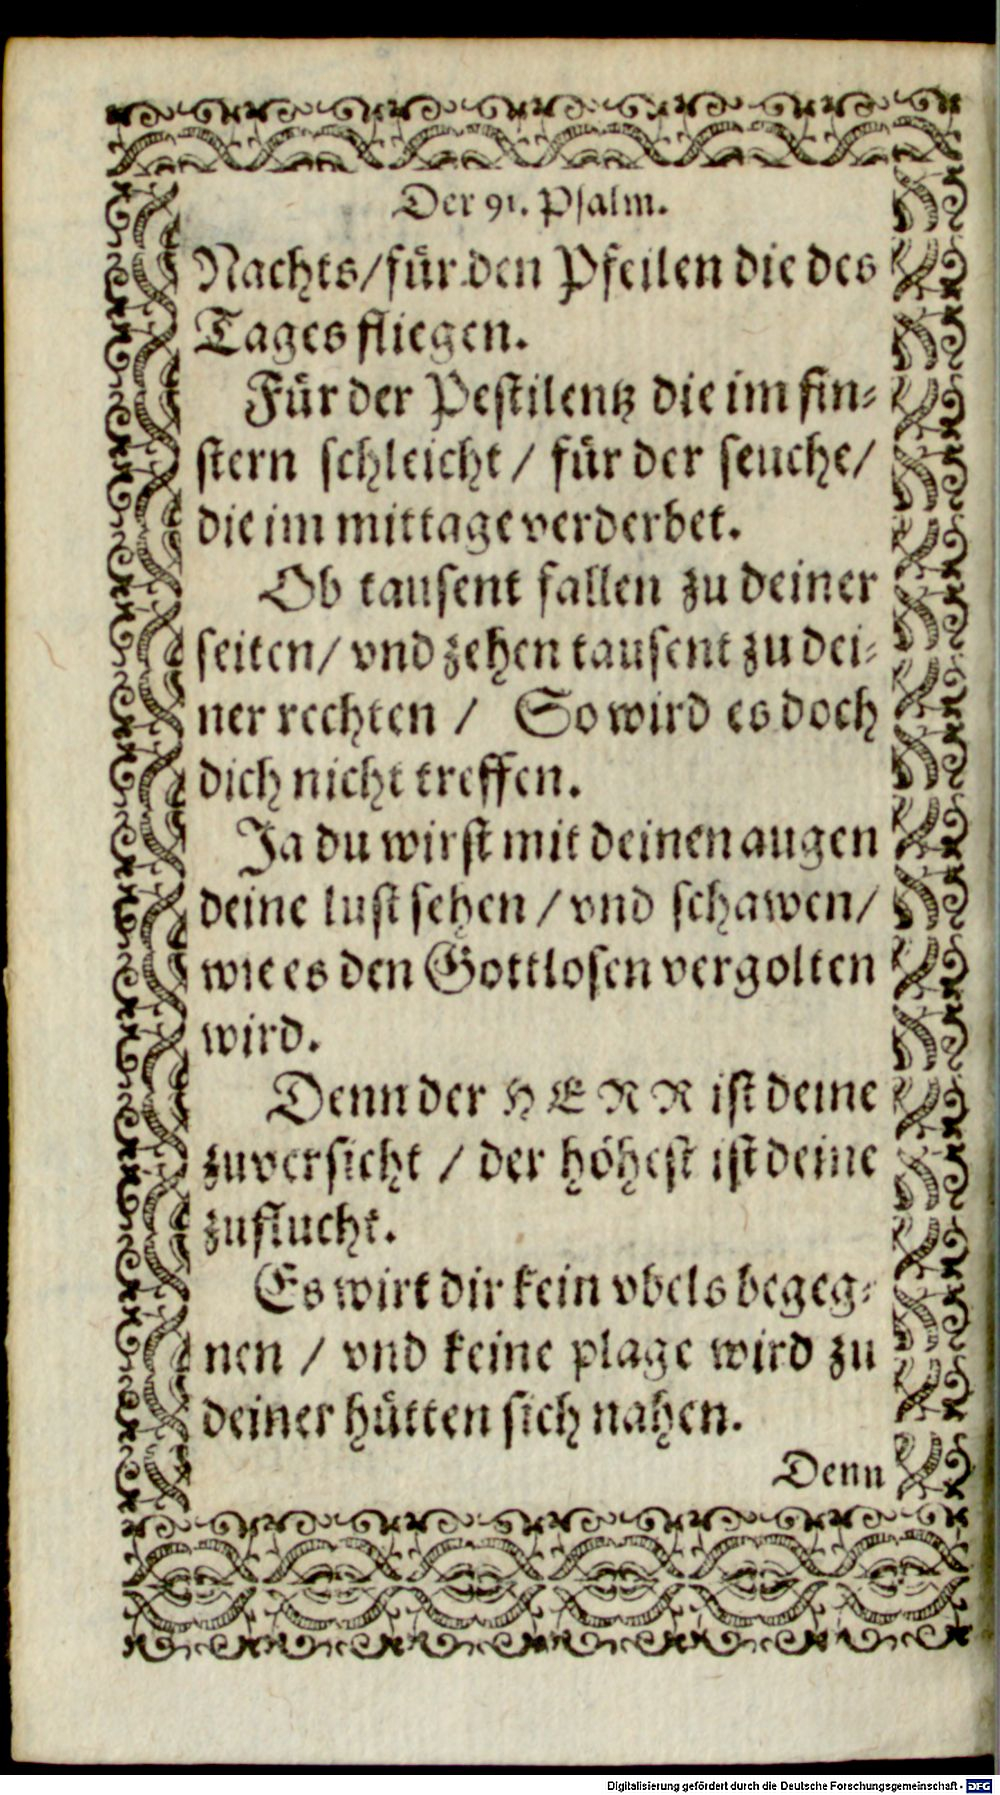 Der 91. Psalm.
Nachts/für den Pfeilen die des
Tages fliegen.
Für der Pestilentz die im fin-
stern schleicht / für der seuche/
die im mittage verderbet.
Ob tausent fallen zu deiner
seiten/ vnd zehen tausent zu dei-
ner rechten / So wird es doch
dich nicht treffen.
Ja du wirst mit deinen augen
deine lust sehen /vnd schawen/
wie es den Gottlosen vergolten
wird.
Denn der HERR ist deine
zuversicht / der höhest ist deine
zuflucht.
Es wirt dir kein vbels begeg-
nen / vnd keine plage wird zu
deiner hütten sich nahen.
Denn
Digitalisierung gefördert durch die Deutsche Forschungsgemeinschaft - DFG